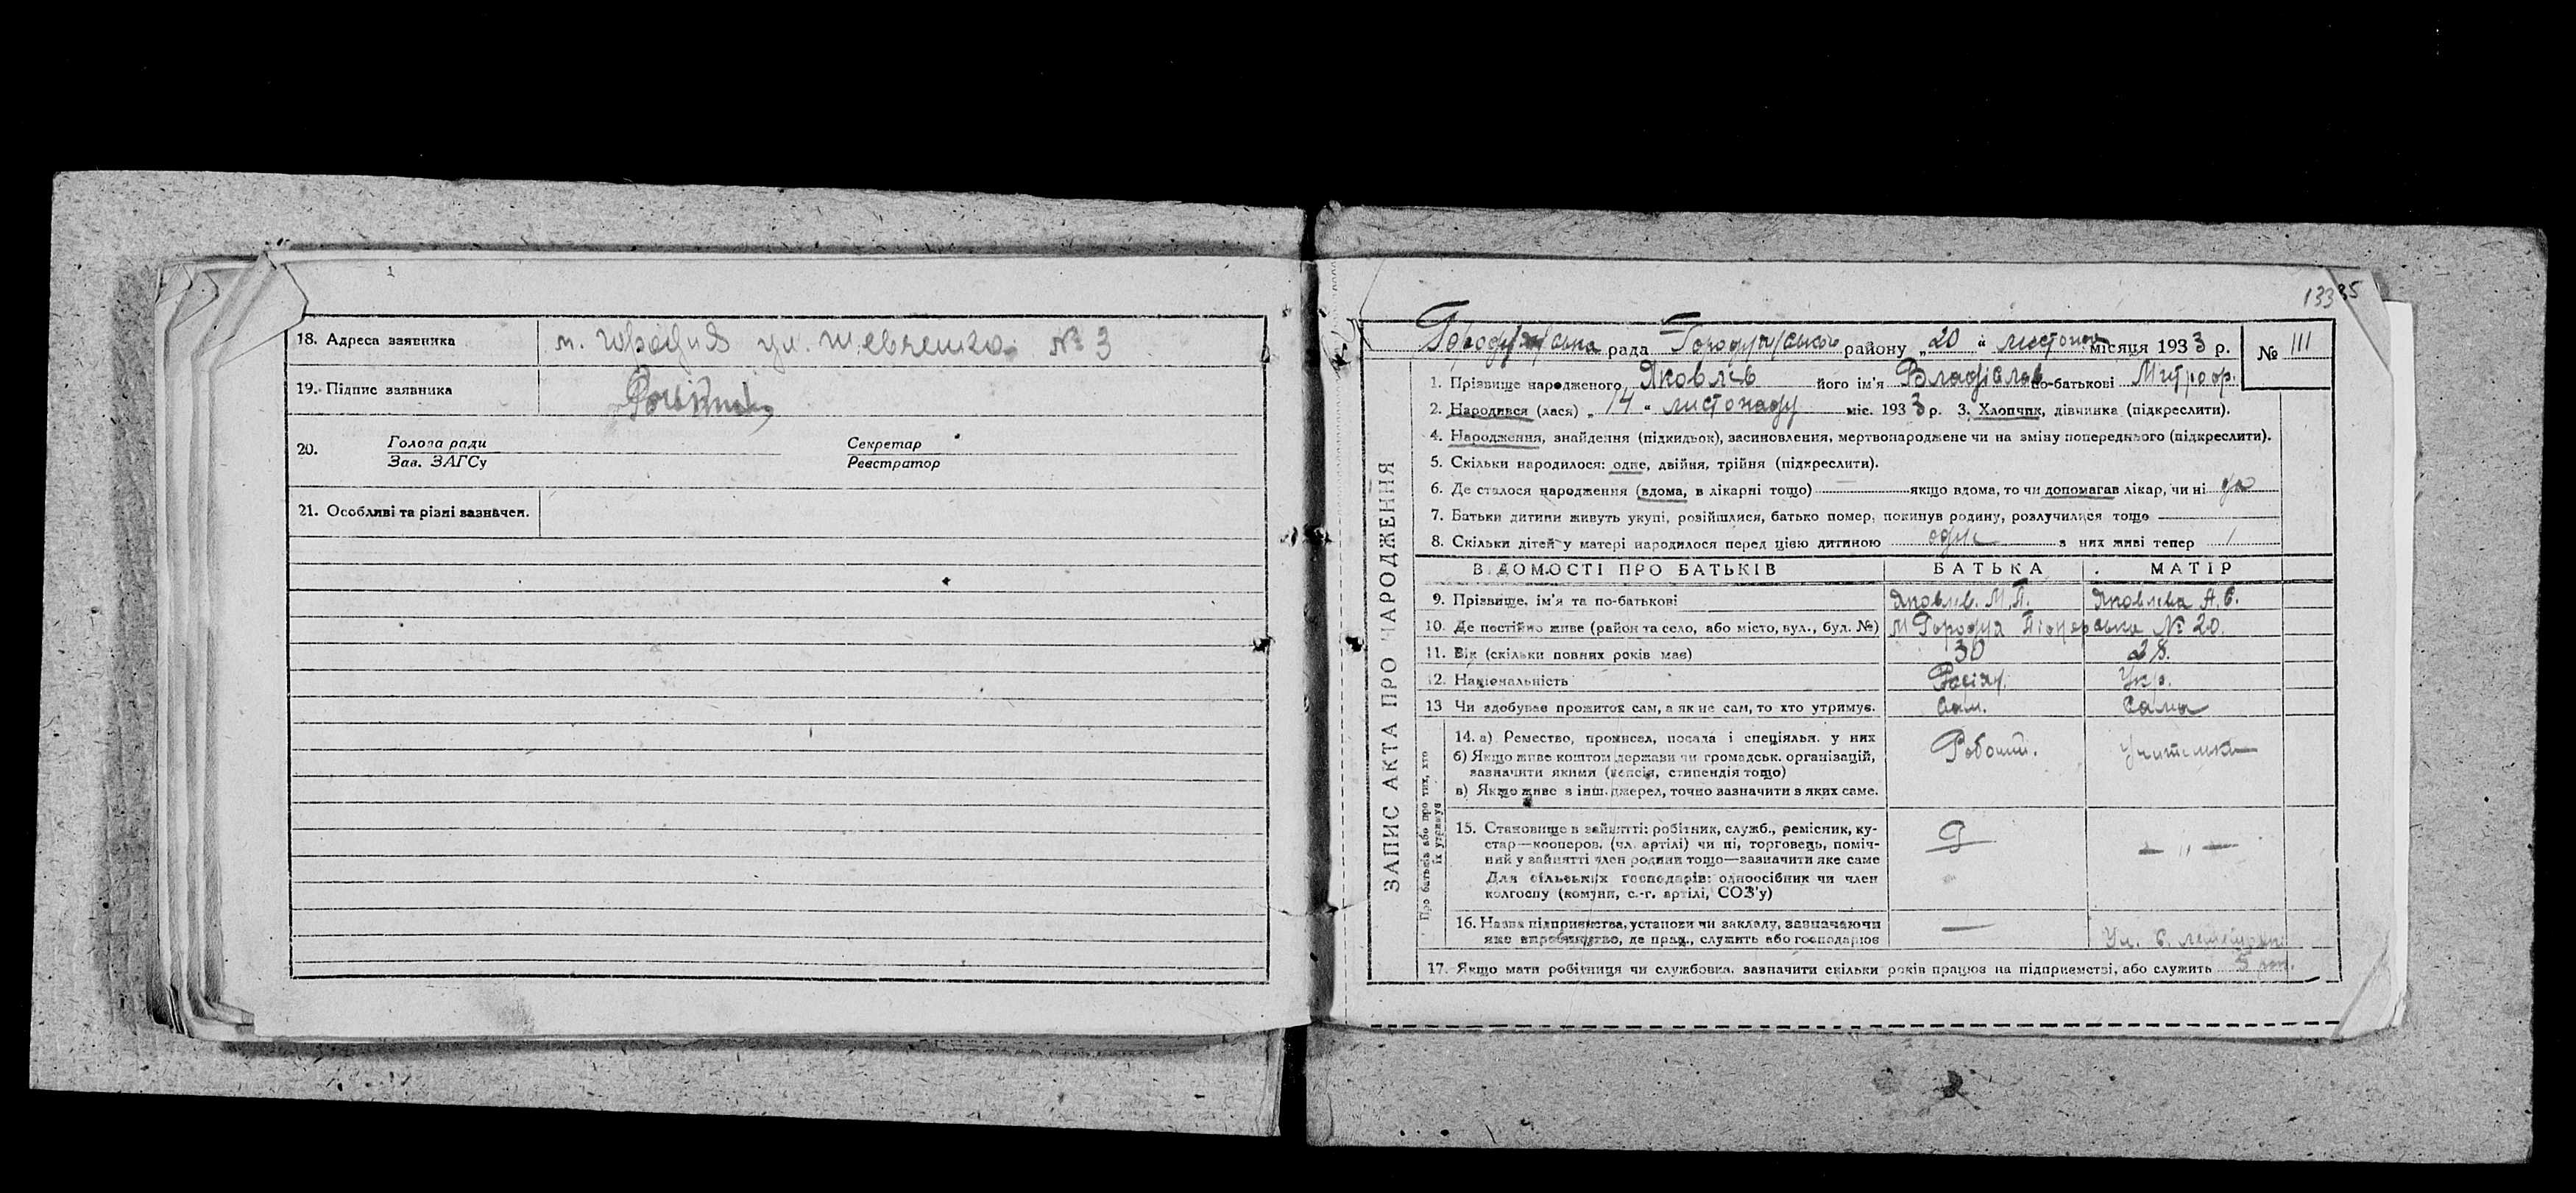 18. Адреса заявника м. Городня ул. Шевченка № 3
19. Підпис заявника
20. Голова ради Секретар
Зав. ЗАГСу Реєстратор
21. Особливі та різні зазначен.
13335
рада району „20“ листопад місяця 1933 р. № 111
ЗАПИС АКТА ПРО НАРОДЖЕННЯ
1. Прізвище народженого Яковлєв його ім'я Владіслав по-батькові Митроф.
2. Народився (лася) „14“ листопаду міс. 1933 р. 3. Хлопчик, дівчинка (підкреслити).
4. Народження, знайдення (підкидьок), засиновлення, мертвонароджене чи на зміну попереднього (підкреслити).
5. Скільки народилося: одне, двійня, трійня (підкреслити).
6. Де сталося народження (вдома, в лікарні тощо) якщо вдома, то чи допомагав лікар, чи ні
7. Батьки дитини живуть укупі, розійшлися, батько помер, покинув родину, розлучилися тощо
8. Скільки дітей у матері народилося перед цією дитиною одне з них живі тепер 1
ВІДОМОСТІ ПРО БАТЬКІВ БАТЬКА МАТІР
9. Прізвище, ім'я та по-батькові Яковлєв. М.П. Яковлєва А.Є.
10. Де постійно живе (район та село, або місто, вул., буд. №) м Городня Піонерська № 20.
11. Вік (скільки повних років має) 30 28.
12. Національність Росіян. Укр.
13 Чи здобуває прожиток сам, а як не сам, то хто утримує. Сам. Сама
Про батьків або про тих, хто їх утримує
14. а) Ремество, промисел, посада і спеціяльн. у них Робітн. Учителька
б) Якщо живе коштом держави чи громадськ. організацій,
зазначити якими (пенсія, стипендія тощо)
в) Якщо живе з інш. джерел, точно зазначити з яких саме.
15. Становище в зайнятті: робітник, служб., ремісник, ку-
стар—кооперов. (чл. артілі) чи ні, торговець, поміч-
ний у зайнятті член родини тощо—зазначити яке саме
Для сільських господарів: одноосібник чи член
колгоспу (комуни, с.-г. артілі, СОЗ'у)
— " —
16. Назва підприємства, установи чи закладу, зазначаючи
яке виробництво, де прац., служить або господарює
17. Якщо мати робітниця чи службовка, зазначити скільки років працює на підприємстві, або служить 5